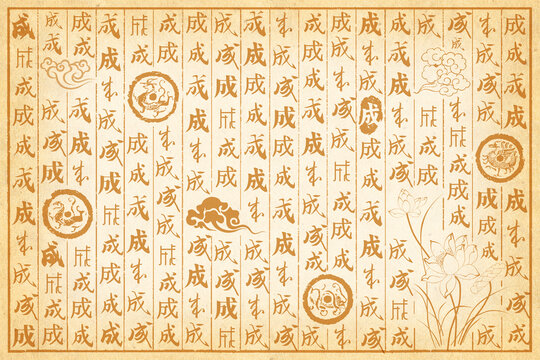 成成成成成成成成成成
成成成成成成成成
成成成成成成成
成成成成成
成成成成成成成成成成成
成成成成成成成成成成成
成成成成成成成成成成
成成成成成成成成成
成成成成成成成成成成成
成成成成成成成成成成
成成成成成成成成成成
成成成成成成成成成成
成成成成成成成成成成
成成成成成成成成成成
成成成成成成成成成成成
成成成成成成成成成成
成成成成成成成成成
成成成成成成成成成成成